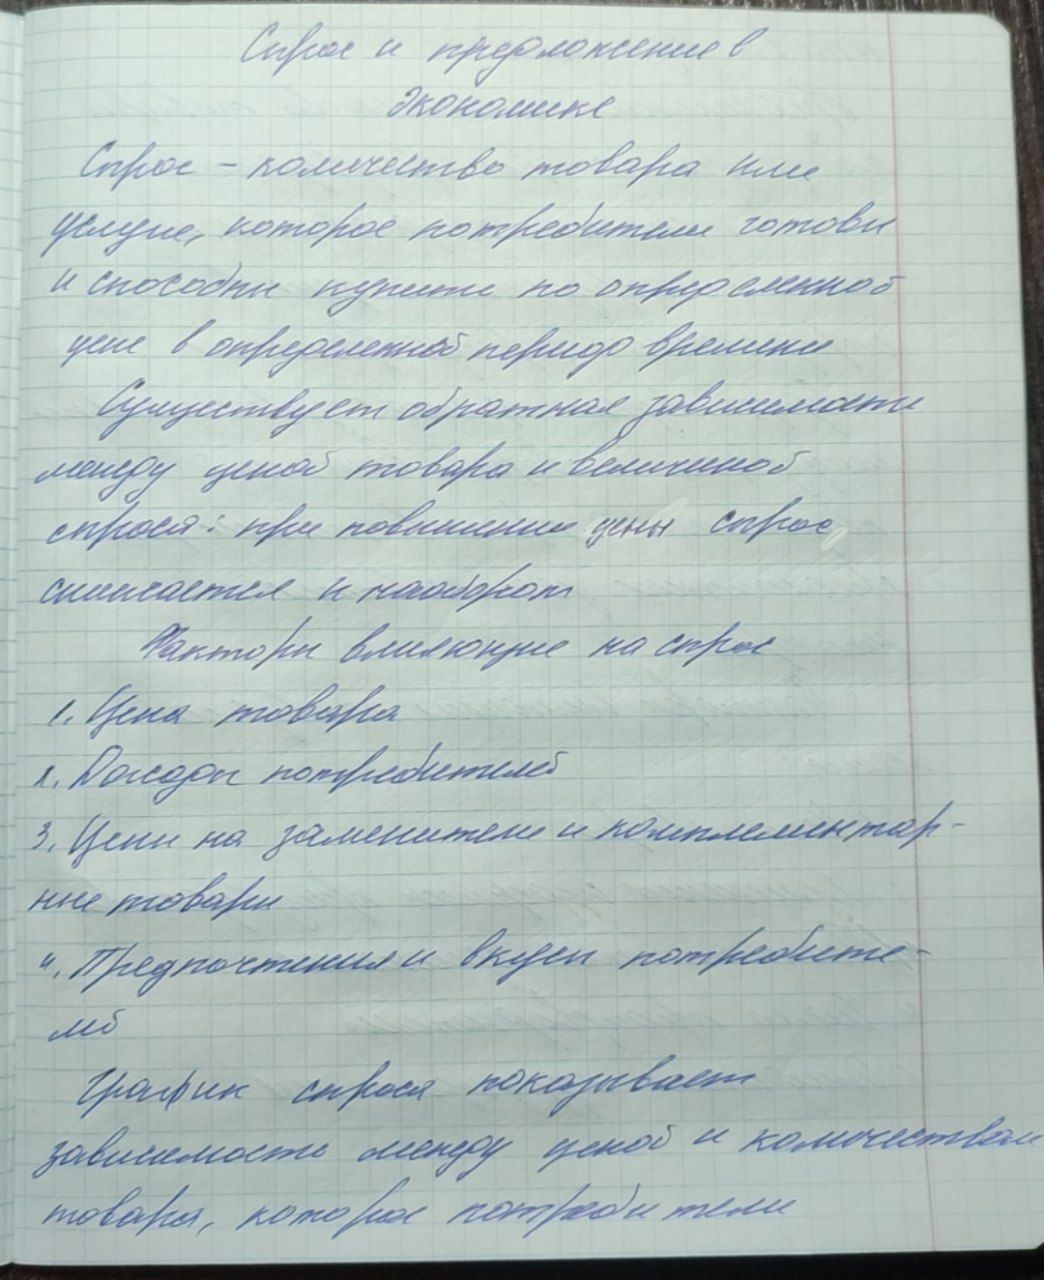 Спрос и предложение в
экономике
Спрос - количество товара или
услуги, которое потребители готовы
и способны купить по определенной
цене в определенной период времени
Существует обратная зависимость
между ценой товара и величиной
спроса: при повышении цены спрос
снижается и наоборот
Факторы влияющие на спрос
1. Цена товара
2. Доходы потребителей
3. Цены на заменители и комплементар-
ные товары
4. Предпочтения и вкусы потребите-
лей
График спроса показывает
зависимость между ценой и количеством
товара, которое потребители